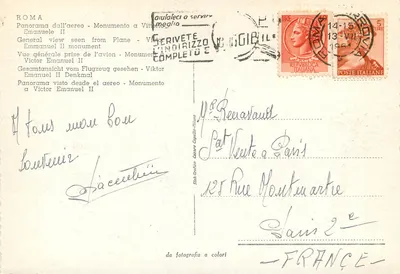 ROMA
Panorama dall'aereo - Monumento a Vittorio
Emanuele II
General view seen from Plane - Victor
Emanuel II monument
Vue générale prise de l'avion - Monument
à Victor Emanuel II
Gesamtansicht vom Flugzeug gesehen - Viktor
Emanuel II Denkmal
Panorama visto desde el aereo - Monumento
a Victor Emanuel II
aiutateci a servirvi
meglio
SCRIVETE
L'INDIRIZZO
COMPLETO E
ROMA
14-15
13 VII
POSTE ITALIANE
A tous mon bon
souvenir
Renavand
Sat Vente à Paris
125 Rue Montmartre
Paris 2e
FRANCE
da fotografia a colori